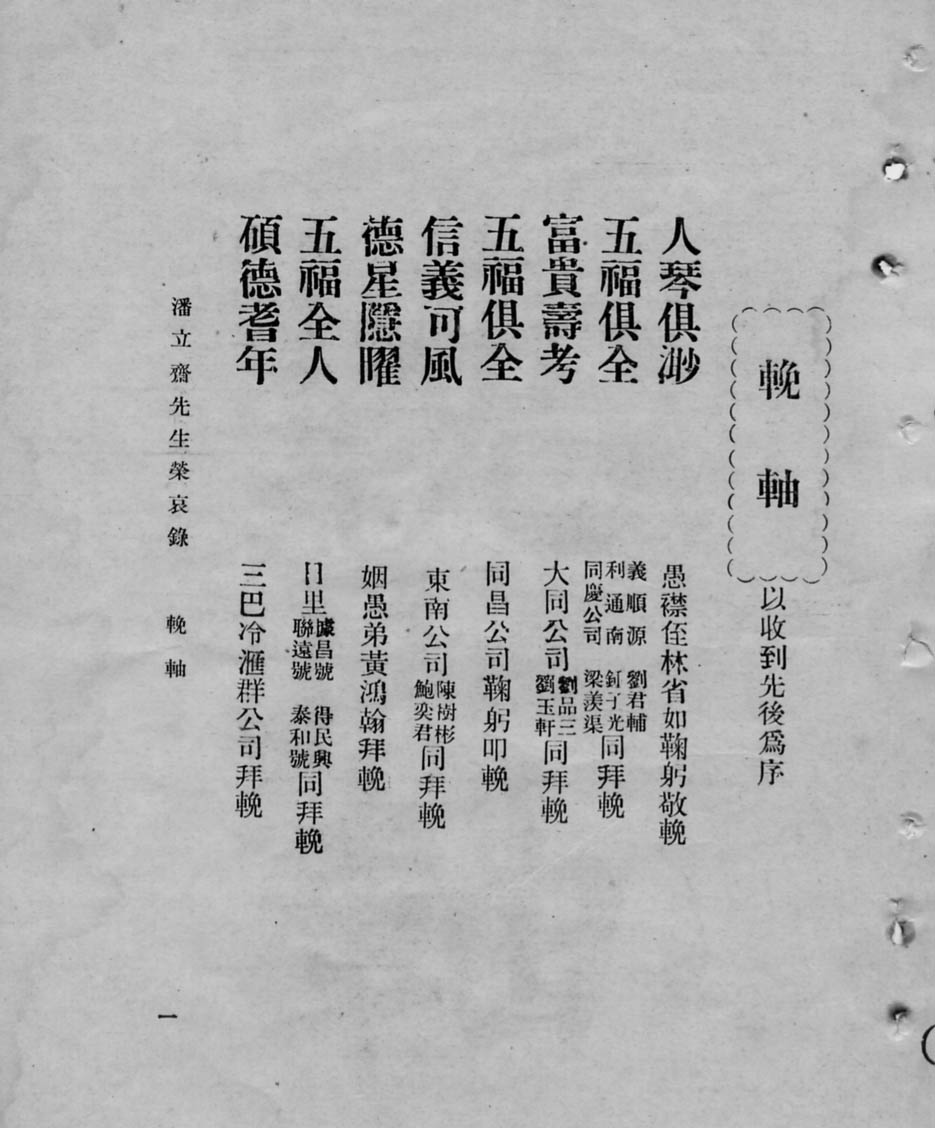 輓軸 以收到先後為序
人琴俱渺 愚襟侄林省如鞠躬敬輓
五福俱全 義順源 劉君輔 利通南 釘子光 同慶公司 梁羨渠 同拜輓
富貴壽考 大同公司 劉品三 劉玉軒 同拜輓
五福俱全 同昌公司鞠躬叩輓
信義可風 東南公司 陳樹彬 鮑奕君 同拜輓
德星隱曜 姻愚弟黃鴻翰拜輓
五福全人 里 昌號 得民興 聯遠號 泰和號 同拜輓
碩德耆年 三巴冷滙群公司拜輓
潘立齋先生榮哀錄 輓軸
一